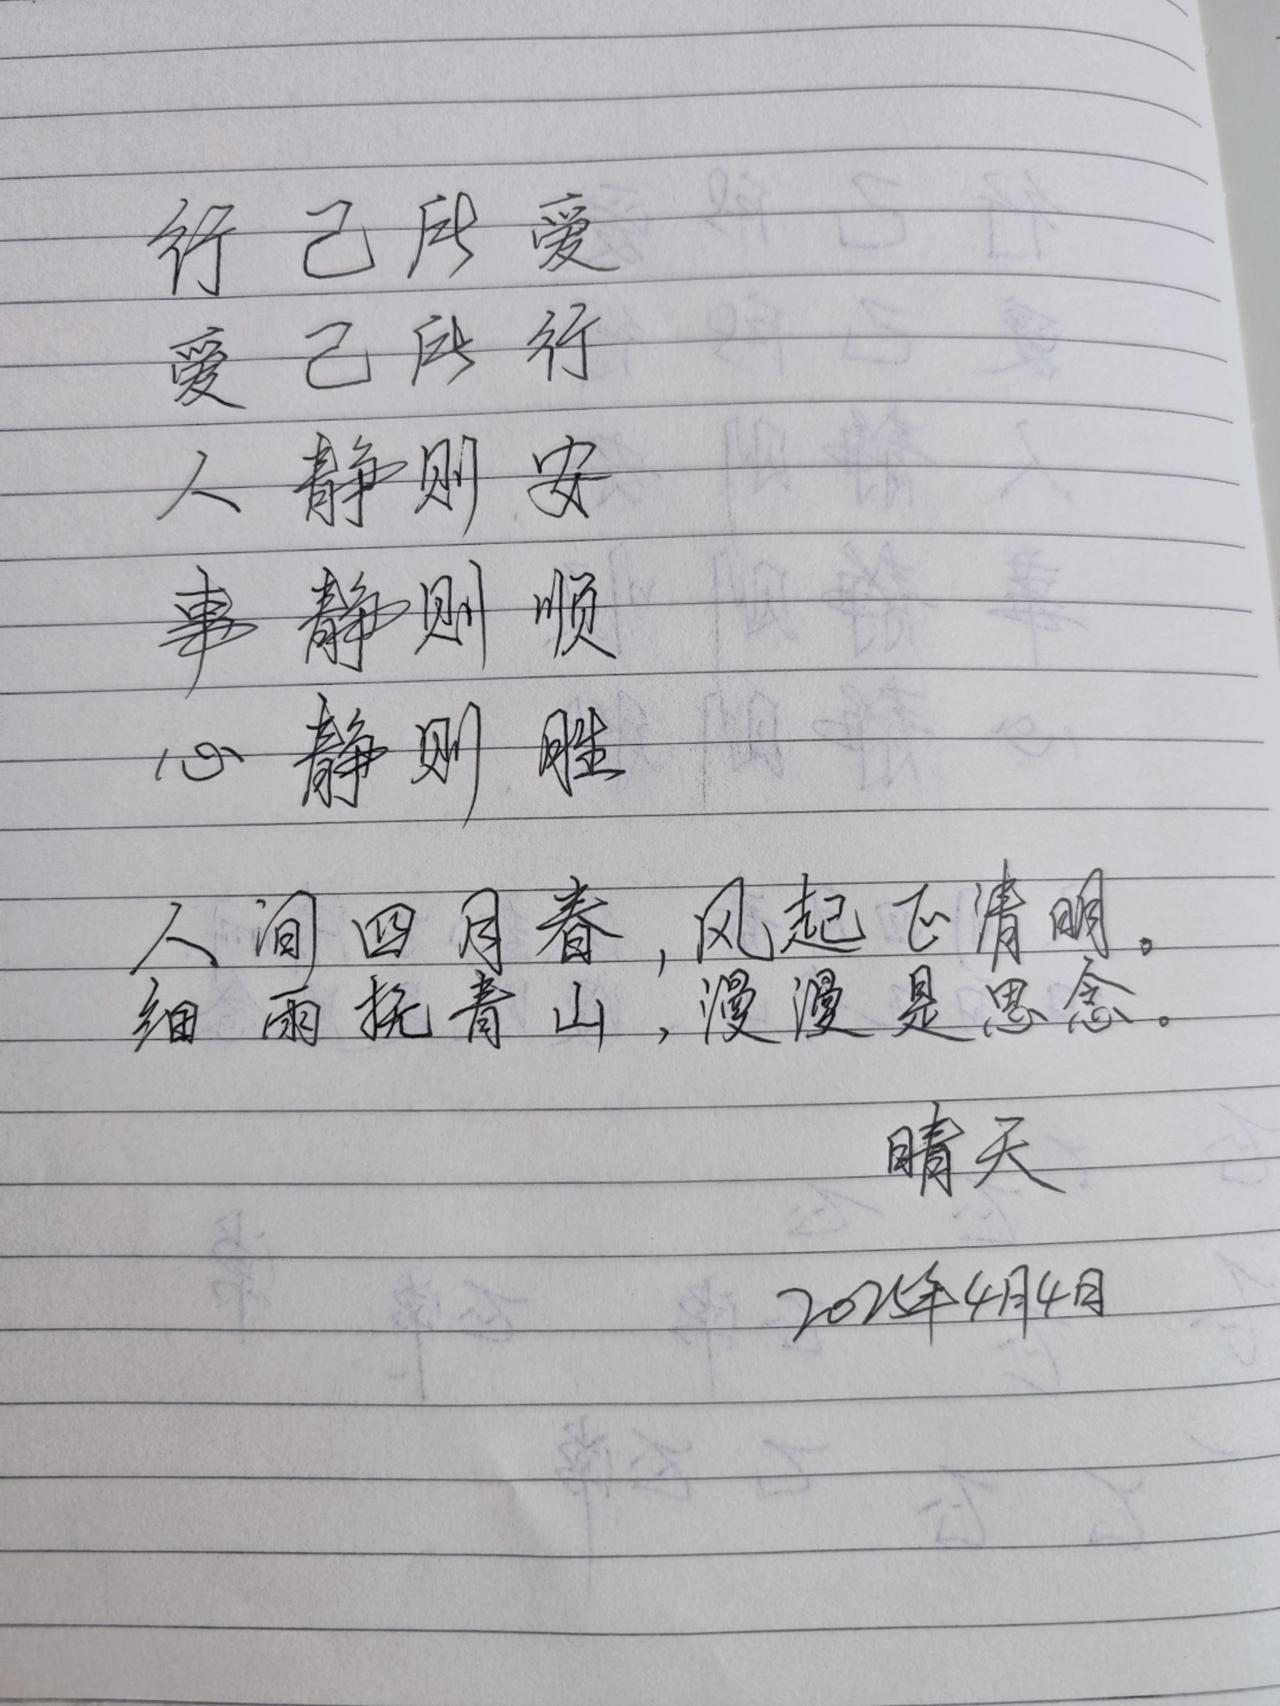 行己所爱
爱己所行
人静则安
事静则顺
心静则胜
人间四月春,风起正清明。
细雨抚青山,漫漫是思念。
晴天
2025年4月4日